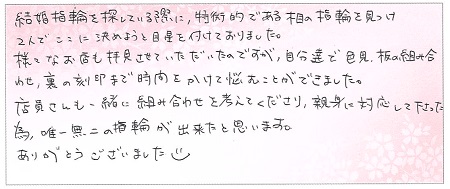 結婚指輪を探している際に、特術的である杢目の指輪を見つけ
2人でここに決めようと目星を付けておりました。
様々なお店も拝見させていただいたのですが、自分達で色見、板の組み合
わせ、裏の刻印まで時間をかけて悩むことができました。
店員さんも一緒に組み合わせを考えてくださり、親身に対応して下さった
為、唯一無二の指輪が出来たと思います。
ありがとうございました